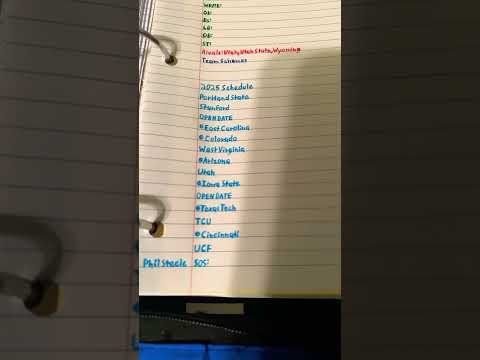 WR/TE:
OL:
DL:
LB:
DB:
ST:
Rivals: Utah, Utah State, Wyoming
Team Schemes
2025 Schedule
Portland State
Stanford
OPEN DATE
@East Carolina
@Colorado
West Virginia
@Arizona
Utah
@Iowa State
OPEN DATE
@Texas Tech
TCU
@Cincinnati
UCF
Phil Steele SOS: